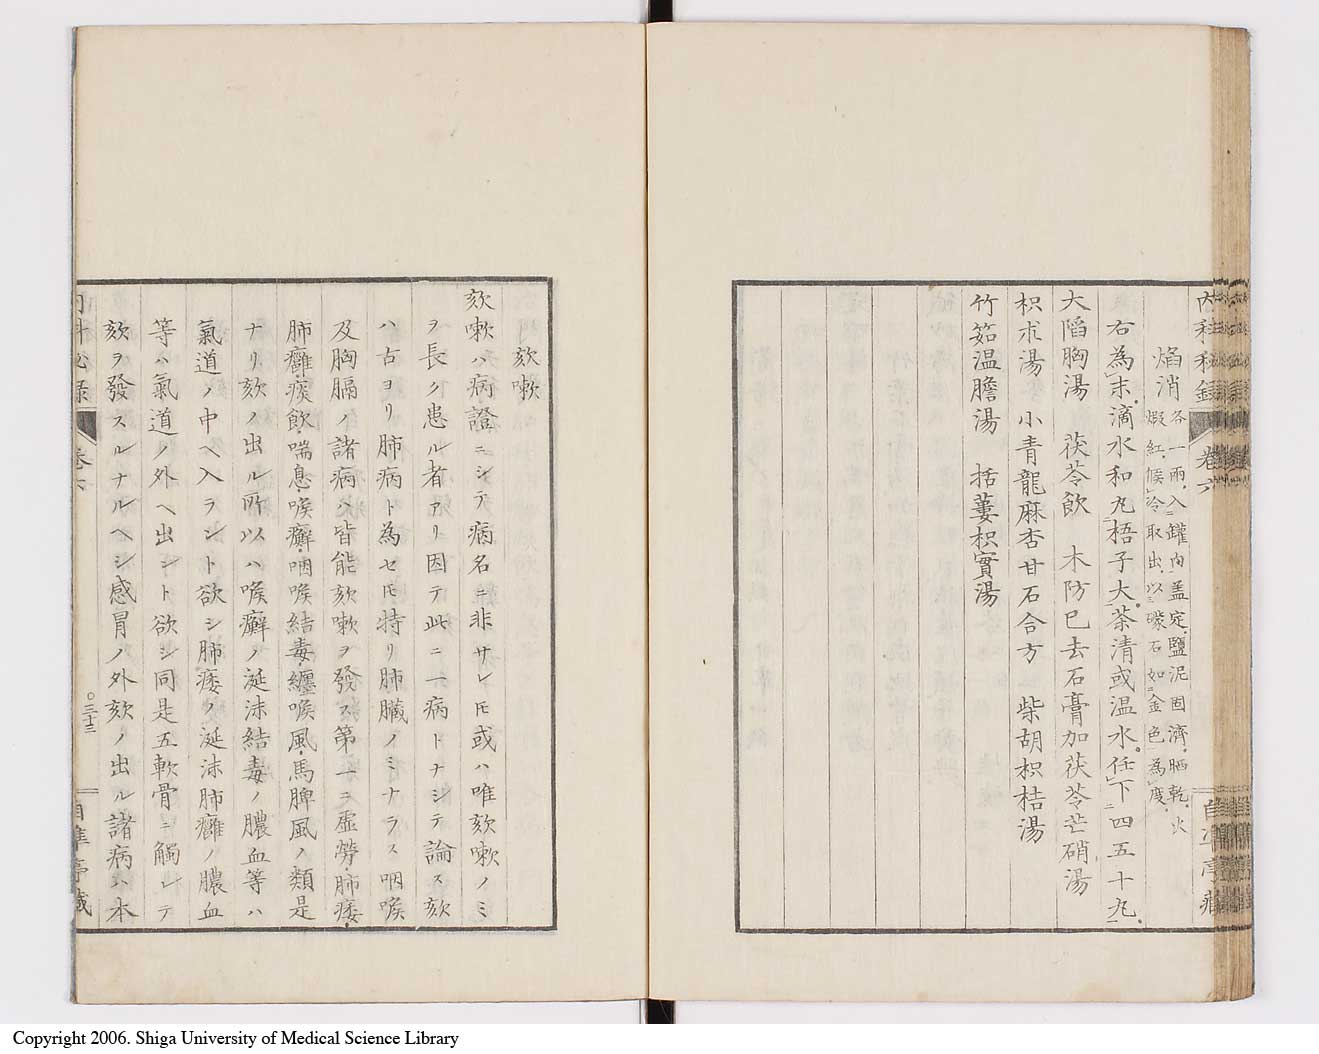 内科秘録
卷六
焰消 各一兩入罐内盖定鹽泥固濟晒乾火
煆紅候冷取出以礞石如金色為度
右為末滴水和丸梧子大茶清或温水任下四五十丸
大䧟胸湯 茯苓飲 木防已去石膏加茯苓芒硝湯
枳朮湯 小青龍麻杏甘石合方 柴胡枳桔湯
竹茹温膽湯 括蔞枳實湯
自準亭藏
欬嗽
欬嗽ハ病證ニシテ病名ニ非サレ𪜈或ハ唯欬嗽ノミ
ヲ長ク患ル者アリ因テ此ニ一病トナシテ論ス欬
ハ古ヨリ肺病ト為セ𪜈特リ肺臓ノミナラス咽喉
及胸膈ノ諸病ハ皆能欬嗽ヲ發ス第一ニ虚勞肺痿
肺癰痰飲喘息喉癬咽喉結毒纏喉風馬脾風ノ類是
ナリ欬ノ出ル所以ハ喉癬ノ涎沫結毒ノ膿血等ハ
氣道ノ中ヘ入ラント欲シ肺痿ノ涎沫肺癰ノ膿血
等ハ氣道ノ外ヘ出ント欲シ同是五軟骨ニ觸レテ
欬ヲ發スルナルヘシ感冒ノ外欬ノ出ル諸病ハ本
内科秘録
卷六
〇三十三
自準亭藏
Copyright 2006. Shiga University of Medical Science Library